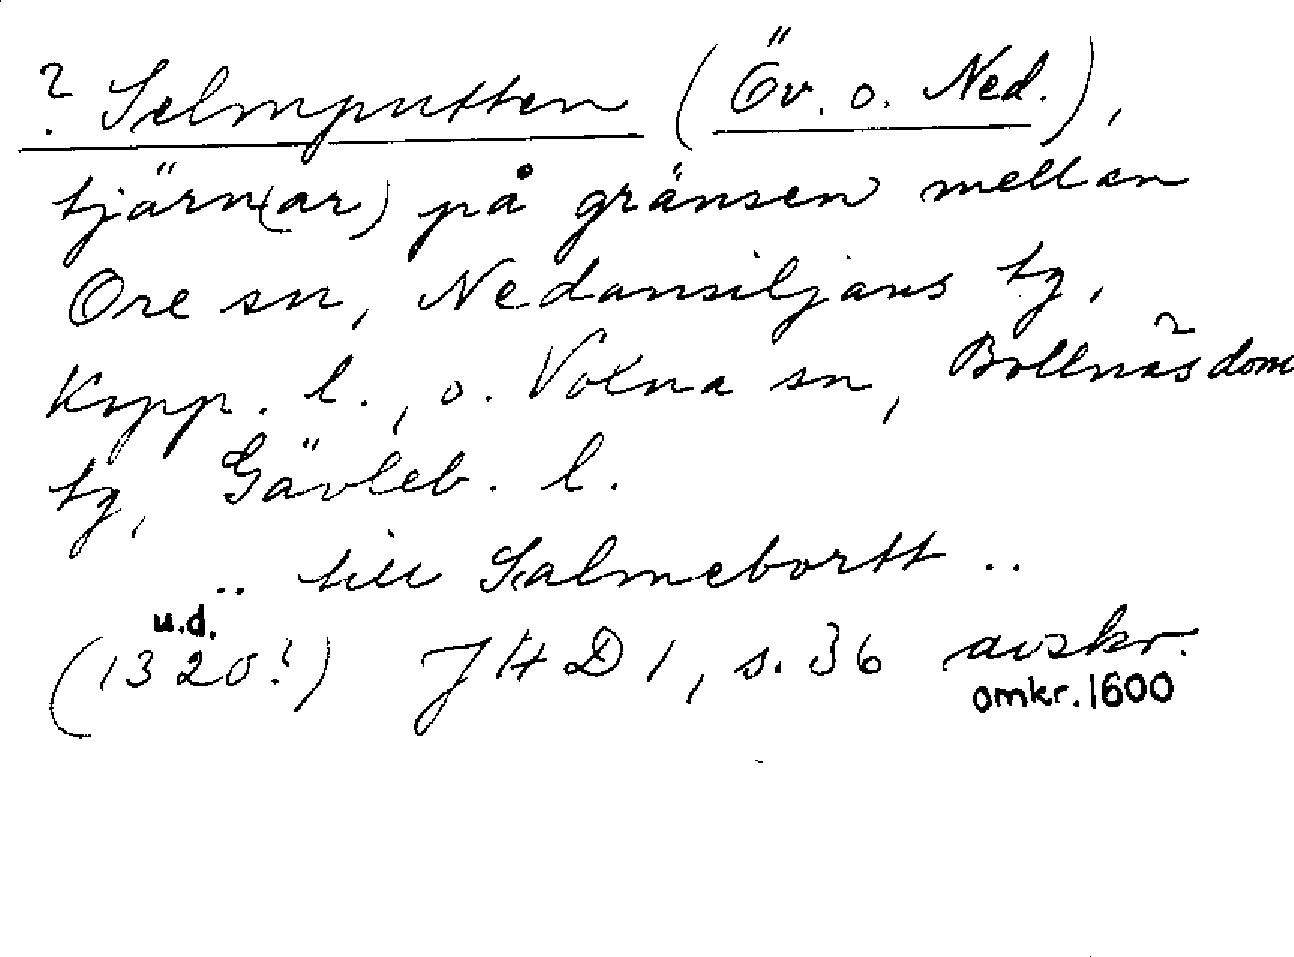 ? Selmputten (Öv. o. Ned.),
tjärn(ar) på gränsen mellan
Ore sn, Nedansiljans tg,
Kopp. l., o. Voxna sn, Bollnäs doms
tg, Gävleb. l.
.. till Salmebortt ..
u.d.
(1320?) JHD 1, s. 36 avskr.
omkr. 1600